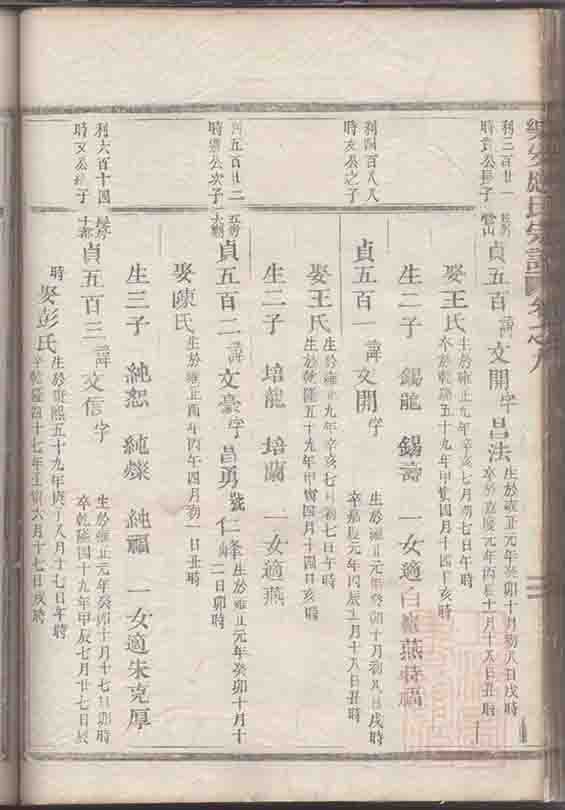 樂安應氏宗譜 卷之八
利三百廿一
時
公長子
貞五百 諱文開 字昌法
生於雍正元年癸卯十月初八日戌時
卒於嘉慶元年丙辰十月十八日丑時
娶王氏
生於雍正九年辛亥七月初七日午時
卒於乾隆五十九年甲寅四月十四日亥時
生二子 錫龍 錫壽 一女適白
燕
福
利四百八八
時文公之子
貞五百一 諱文開 字
生於雍正元年癸卯十月初八日戌時
卒嘉慶元年丙辰五月十八日丑時
娶王氏
生於雍正九年辛亥七月初七日午時
生於乾隆五十九年甲寅四月十四日亥時
生二子 培龍 培蘭 一女適燕
利五百廿二
時
公次子
貞五百二 諱文豪 字昌勇 號仁峰
生於雍正元年癸卯十月十
二日卯時
娶陳氏
生於雍正
年丙午四月初一日丑時
生三子 純恕 純燦 純福 一女適朱克厚
利六百十四
時文公
子
貞五百三 諱文信 字
生於雍正元年癸卯十月十七日卯時
卒乾隆四十九年甲辰七月廿七日辰
時
娶彭氏
生於康熙五十九年庚子八月十七日午時
卒乾隆四十七年壬寅六月十七日戌時